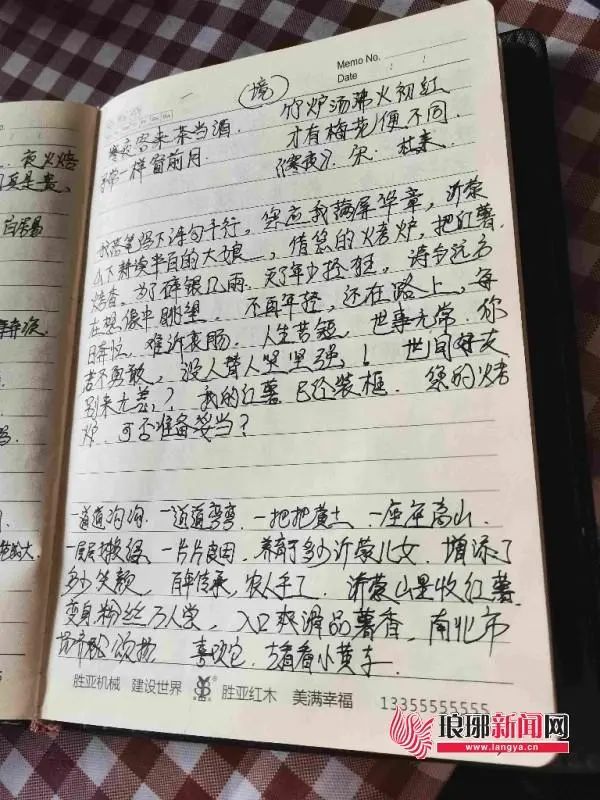 Memo No.
Date
境
寒夜客来茶当酒. 竹炉汤沸火初红
寻常一样窗前月. 才有梅花便不同.
《寒夜》. 宋. 杜耒
我落笔写下诗句千行, 您应我满屏华章, 沂蒙
山下耕读半百的大娘, 借您的烤炉, 把红薯
烤香. 为了碎银几两. 灭了年少轻狂. 诗和远方
在想像中眺望. 不再年轻, 还在路上, 每
日奔忙. 难诉衷肠. 人生苦短. 世事无常. 你
若不勇敢, 没人替人坚强! 世间好友
别来无恙? 我的红薯已经装框. 您的烤
炉. 可否准备妥当?
一道道沟沟. 一道道弯弯. 一把把黄土. 一座座高山.
一层层 一片片良田. 养育了多少沂蒙儿女. 增添了
多少笑颜. 百年传承, 农人手工. 沂蒙山里收红薯.
变身粉丝万人尝, 入口爽滑品薯香, 南北市
场齐 颂扬. 喜欢它. 请看小黄车.
胜亚机械 建设世界 胜亚红木 美满幸福 13355555555
夜火焙
白居易
琅琊新闻网
www.langya.cn